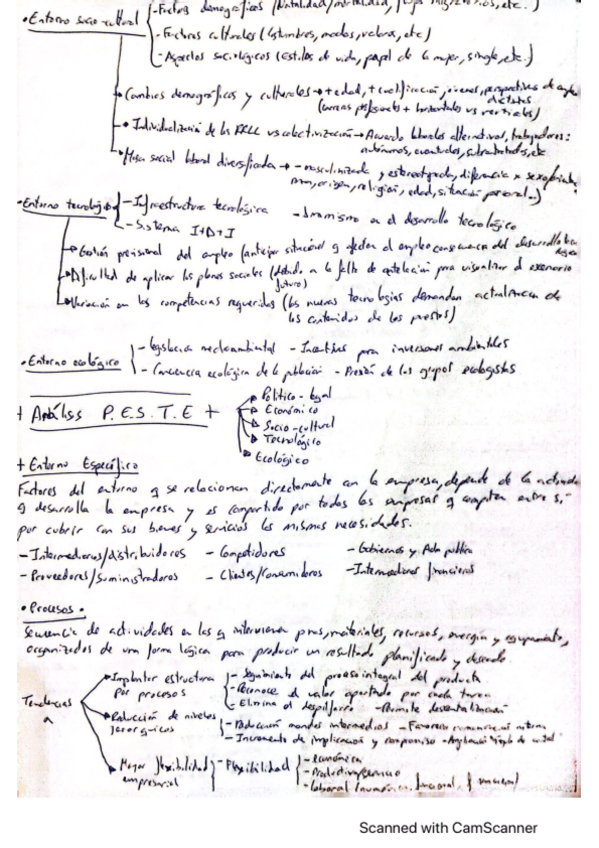 - Factores demográficos (Natalidad/mortalidad, flujos migratorios, etc.)
• Entorno socio-cultural
- Factores culturales (costumbres, modas, valores, etc)
- Aspectos sociológicos (estilos de vida, papel de la mujer, single, etc.)
• Cambios demográficos y culturales → + edad, + cualificación, jóvenes, perspectivas de empleo
(carreras profesionales + horizontales vs verticales)
• Individualización de las RRLL vs colectivización → Acuerdos laborales alternativos, trabajadores:
autónomos, eventuales, subcontratados, etc
• Masa social laboral diversificada → - masculinizada y estereotipada, diferencia x sexo
religión, edad, situación personal...)
• Entorno tecnológico
- Infraestructura tecnológica - dinamismo en el desarrollo tecnológico
- Sistema I+D+I
• Gestión previsional del empleo (anticipar situación q afecten al empleo consecuencia del desarrollo
• Dificultad de aplicar los planes sociales (debido a la falta de antelación para visualizar el escenario
futuro)
• Variación en las competencias requeridas (las nuevas tecnologías demandan actualización de
los contenidos de los puestos)
• Entorno ecológico
- legislación medioambiental - Incentivos para inversiones ambientales
- Conciencia ecológica de la población - Presión de los grupos ecologistas
+ Análisis P.E.S.T.E +
Político-legal
Económico
Socio-cultural
Tecnológico
Ecológico
+ Entorno Específico
Factores del entorno q se relacionan directamente con la empresa, depende de la actividad
q desarrolla la empresa y es compartido por todas las empresas q compiten entre sí
por cubrir con sus bienes y servicios las mismas necesidades.
- Intermediarios/distribuidores - Competidores - Gobiernos y Adm pública
- Proveedores/Suministradores - Clientes/Consumidores - Intermediarios financieros
• Procesos •
Secuencia de actividades en las q intervienen materiales, recursos, energía y equipamiento,
organizados de una forma lógica para producir un resultado planificado y deseado.
Tendencias
a
Implantar estructura por procesos
- Seguimiento del proceso integral del producto
- Reconoce el valor aportado por cada tarea
- Elimina el despilfarro - Permite descentralización
Reducción de niveles jerárquicos
- Reducción mandos intermedios - Favorece comunicación interna
- Incremento de implicación y compromiso
Mayor flexibilidad empresarial
- Flexibilidad
- económica
- Productiva/técnica
- laboral (numérica, funcional y
Scanned with CamScanner